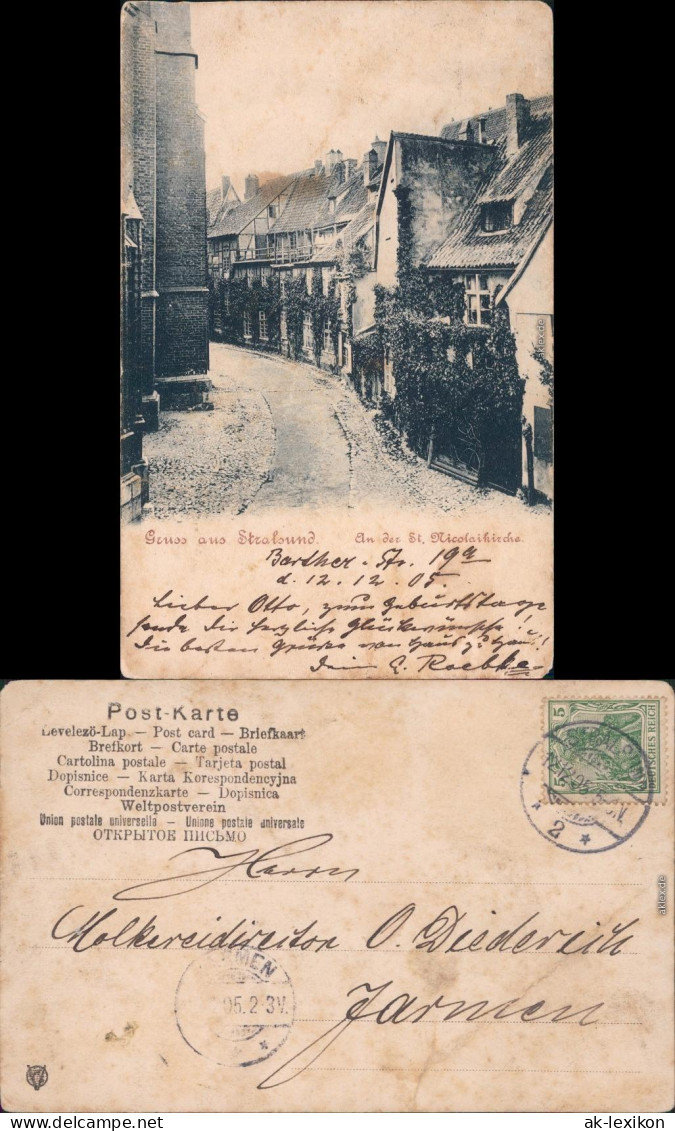 Gruss aus Stralsund. An der St. Nicolaikirche.
Barther-Str. 19
d. 12.12.05.
Lieber Otto, zum Geburtstage
sende dir herzliche Glückwünsche!
Die besten Grüße von Haus zu Haus!
Dein E. Roebke
aklex.de
Post-Karte
Levelező-Lap – Post card – Briefkaart
Brefkort – Carte postale
Cartolina postale – Tarjeta postal
Dopisnice – Karta Korespondencyjna
Correspondenzkarte – Dopisnica
Weltpostverein
Union postale universelle – Unione postale universale
ОТКРЫТОЕ ПИСЬМО
5
DEUTSCHES REICH
2
Herrn
Molkereidirektor O. Diederich
Jarmen
RMEN
05.2-3V.
aklex.de
ak-lexikon